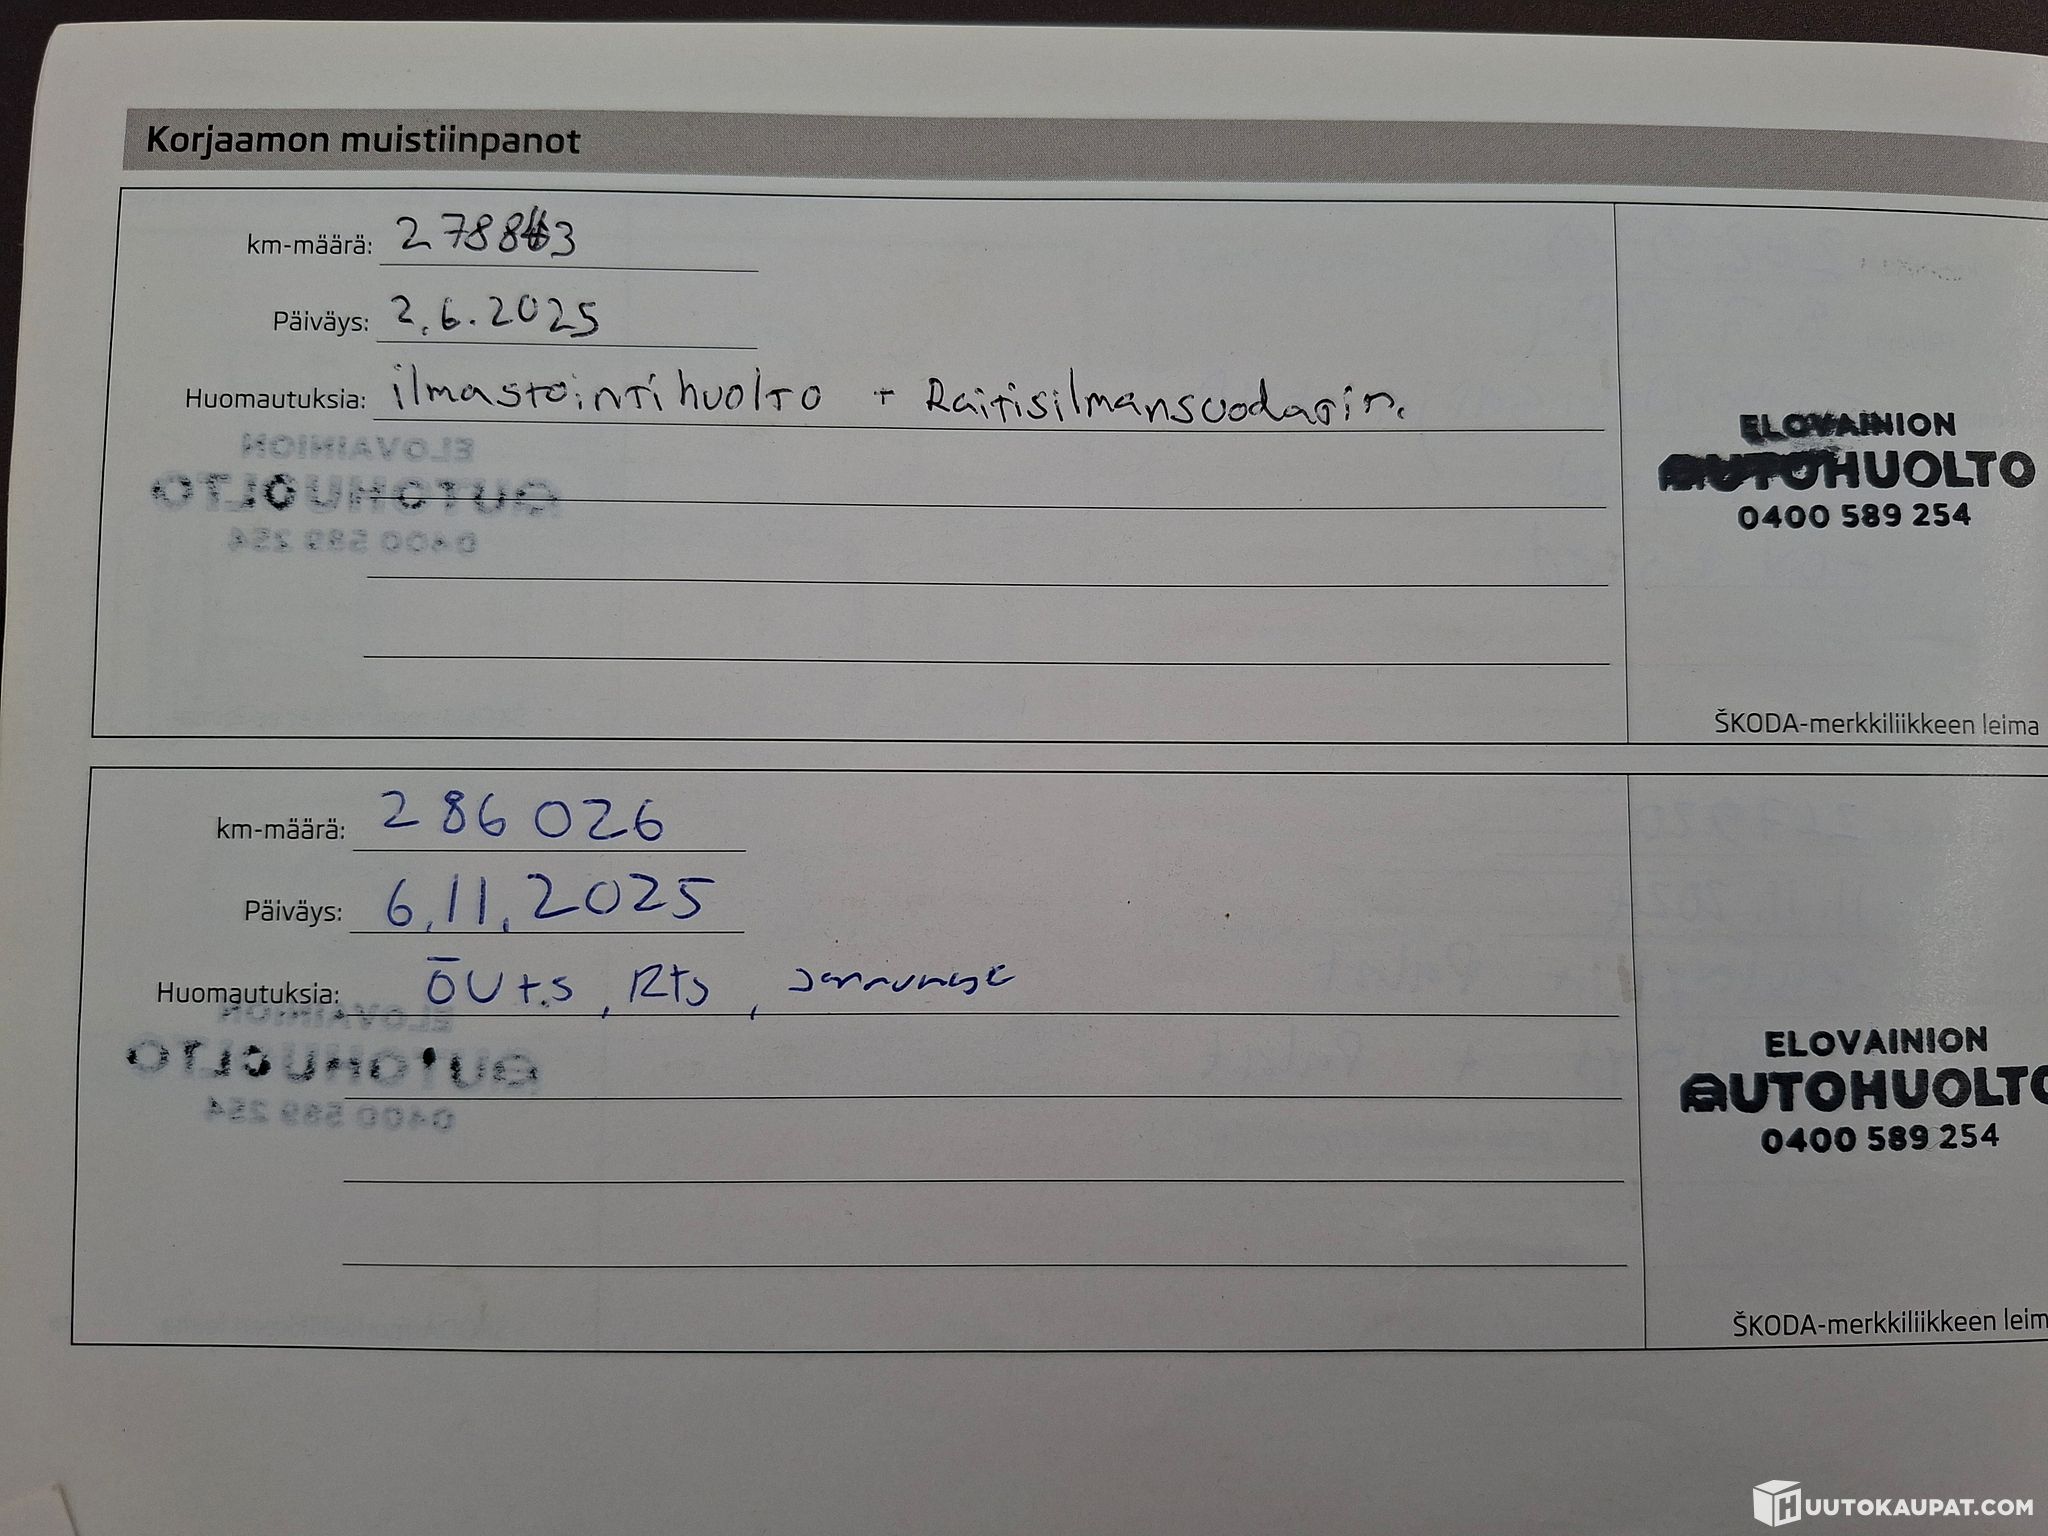 Korjaamon muistiinpanot
km-määrä: 27883
Päiväys: 2.6.2025
Huomautuksia: ilmastointihuolto + Raitisilmansuodatin.
ELOVAINION
AUTOHUOLTO
0400 589 254
ŠKODA-merkkiliikkeen leima
km-määrä: 286 026
Päiväys: 6.11.2025
Huomautuksia: ÖV+s, Rts, Jarruneste
ELOVAINION
AUTOHUOLTO
0400 589 254
ŠKODA-merkkiliikkeen leim
HUUTOKAUPAT.COM